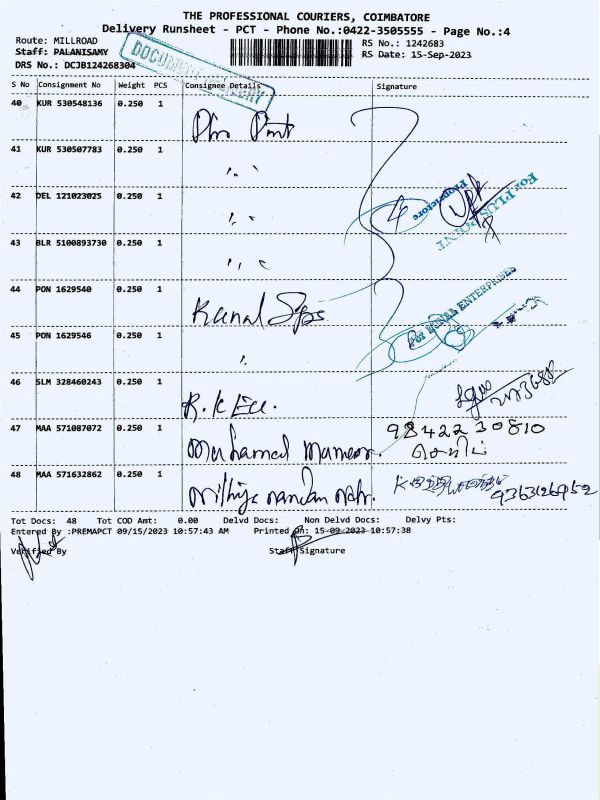 THE PROFESSIONAL COURIERS, COIMBATORE
Delivery Runsheet - PCT - Phone No.:0422-3505555 - Page No.:4
Route: MILLROAD
RS No.: 1242683
Staff: PALANISAMY
RS Date: 15-Sep-2023
DRS No.: DCJB124268304
S No Consignment No Weight PCS Consignee Details Signature
40 KUR 530548136 0.250 1
41 KUR 530507783 0.250 1 "
42 DEL 121023025 0.250 1 "
Proprietor
For PLUS POINT
43 BLR 5100893730 0.250 1 "
44 PON 1629540 0.250 1 Kunal
For KUNAL ENTERPRISES
45 PON 1629546 0.250 1 "
46 SLM 328460243 0.250 1 R.K
47 MAA 571087072 0.250 1 Muhamed 98422 30810
48 MAA 571632862 0.250 1 Nithiya nandan
Tot Docs: 48 Tot COD Amt: 0.00 Delvd Docs: Non Delvd Docs: Delvy Pts:
Entered By :PREMAPCT 09/15/2023 10:57:43 AM Printed On: 15-09-2023 10:57:38
Verified By Staff Signature